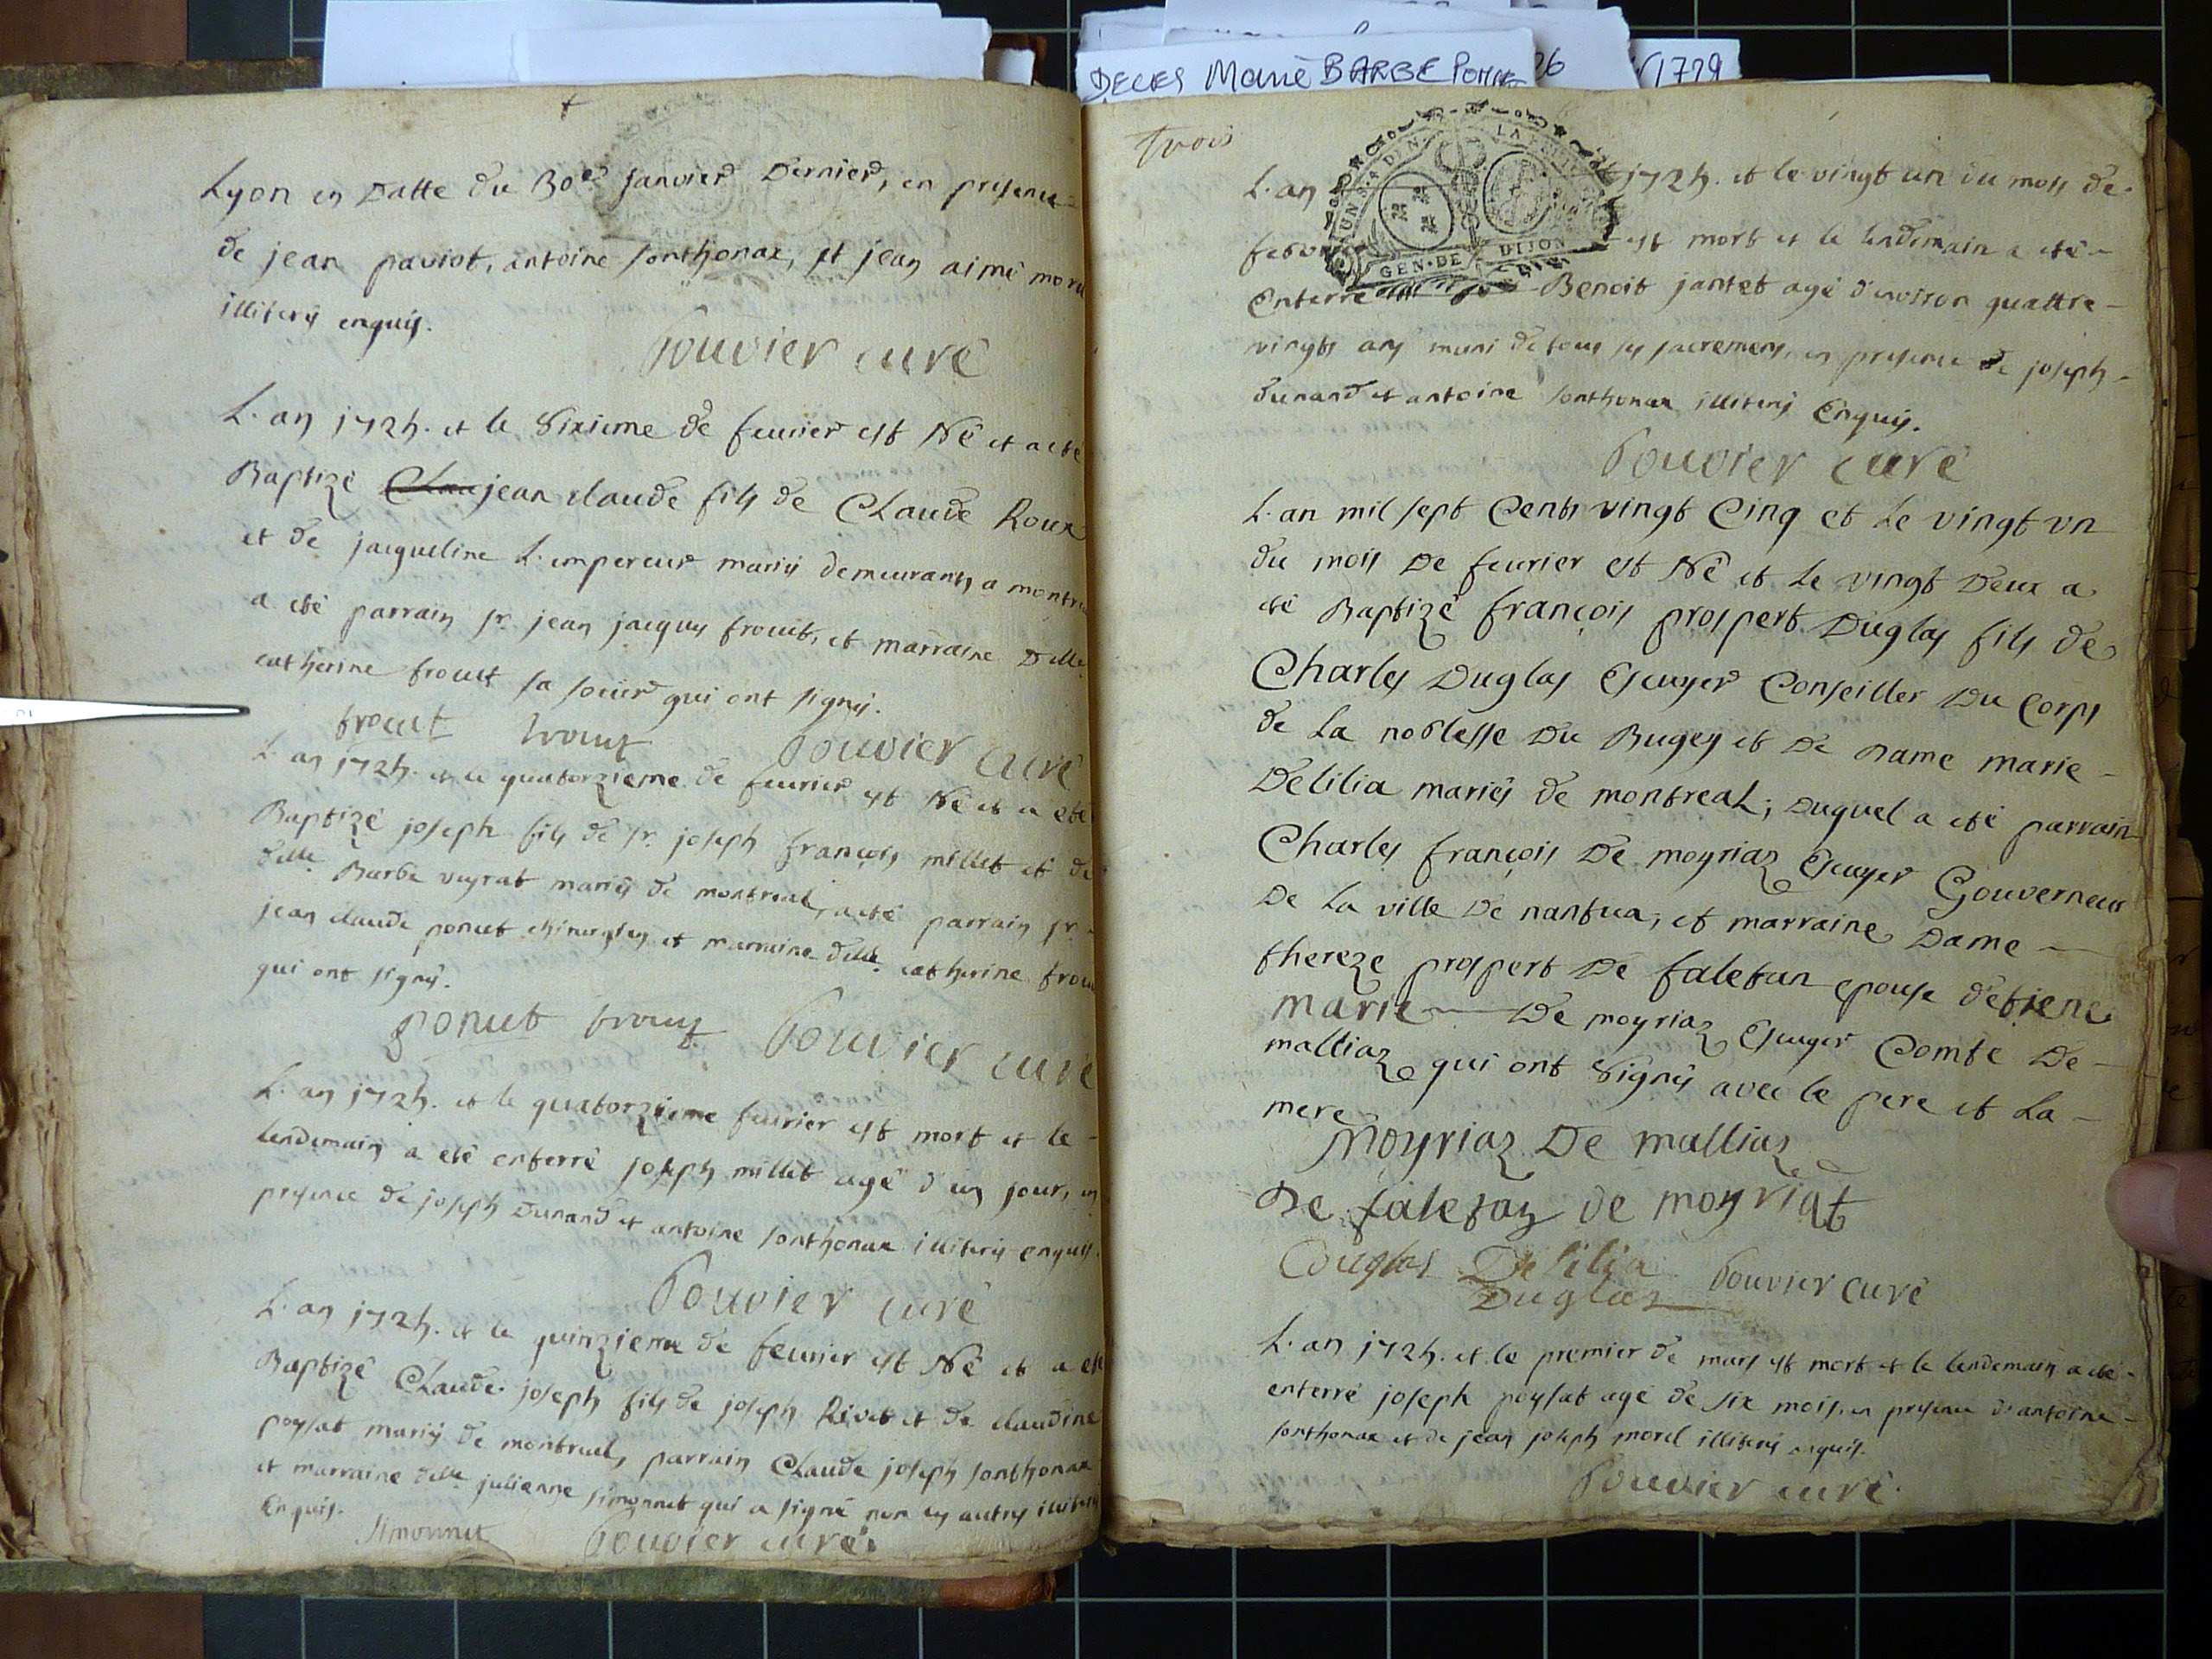 DECES Marie BARBE
26
1729
Lyon en Datte du 30e janvier Dernier, en presence
de jean paviot, antoine sonthonax, et jean aimé
illiterés enquis.
Bouvier curé
L'an 1725. et le Sixieme de feuvrier est Né et a eté
Baptizé jean claude fils de Claude Roux
et de jacqueline L'empereur mariés demeurants a
a eté parrain sr. jean jacques frouit, et marraine Dlle
catherine frouit sa soeur qui ont signés.
frouit frouit Bouvier curé
L'an 1725. et le quatorzieme de feuvrier est Né et a eté
Baptizé joseph fils de sr. joseph françois millet et de
delle. Barbe veyrat mariés de montreal, a eté parrain sr.
jean claude poncet chirurgien et marraine delle. catherine
qui ont signés.
poncet frouit Bouvier curé
L'an 1725. et le quatorzieme feuvrier est mort et le
lendemain a eté enterré joseph millet agé d'un jour, en
presence de joseph Dunand et antoine sonthonax illiterés enquis.
Bouvier curé
L'an 1725. et le quinzieme de feuvrier est Né et a eté
Baptizé Claude joseph fils de joseph Rivet et de claudine
poysat mariés de montreal, parrain Claude joseph sonthonax
et marraine delle. julienne simonnet qui a signé non les autres illiterés
Enquis.
Simonnet Bouvier curé
trois
GEN·DE DIJON
L'an 1725. et le vingt un du mois de
est mort et le lendemain a eté
Enterré Benoit jantet agé d'environ quattre
vingts ans muni de tous ses sacremens, en presence de joseph
dunand et antoine sonthonax illiterés Enquis.
Bouvier curé
L'an mil sept Cents vingt Cinq et Le vingt un
du mois De feuvrier est Né et Le vingt Deux a
eté Baptizé françois prospert Duglas fils de
Charles Duglas Escuyer Conseiller Du Corps
de La noblesse Du Bugey et De Dame marie
Delilia mariés de montreal; Duquel a eté parrain
Charles françois De moyriaz Escuyer Gouverneur
De La ville De nantua; et marraine Dame
thereze prospert De faletan epouse d'etiene
marie De moyriaz Escuyer Comte De
malliaz qui ont signés avec le pere et La
mere
Moyriaz De malliaz
De faletan de moyriat
Duglas Delilia Bouvier curé
Duglas
L'an 1725. et le premier de mars est mort et le lendemain a eté
enterré joseph poysat agé de six mois, en presence d'antoine
sonthonax et de jean joseph morel illiterés enquis.
Bouvier curé.